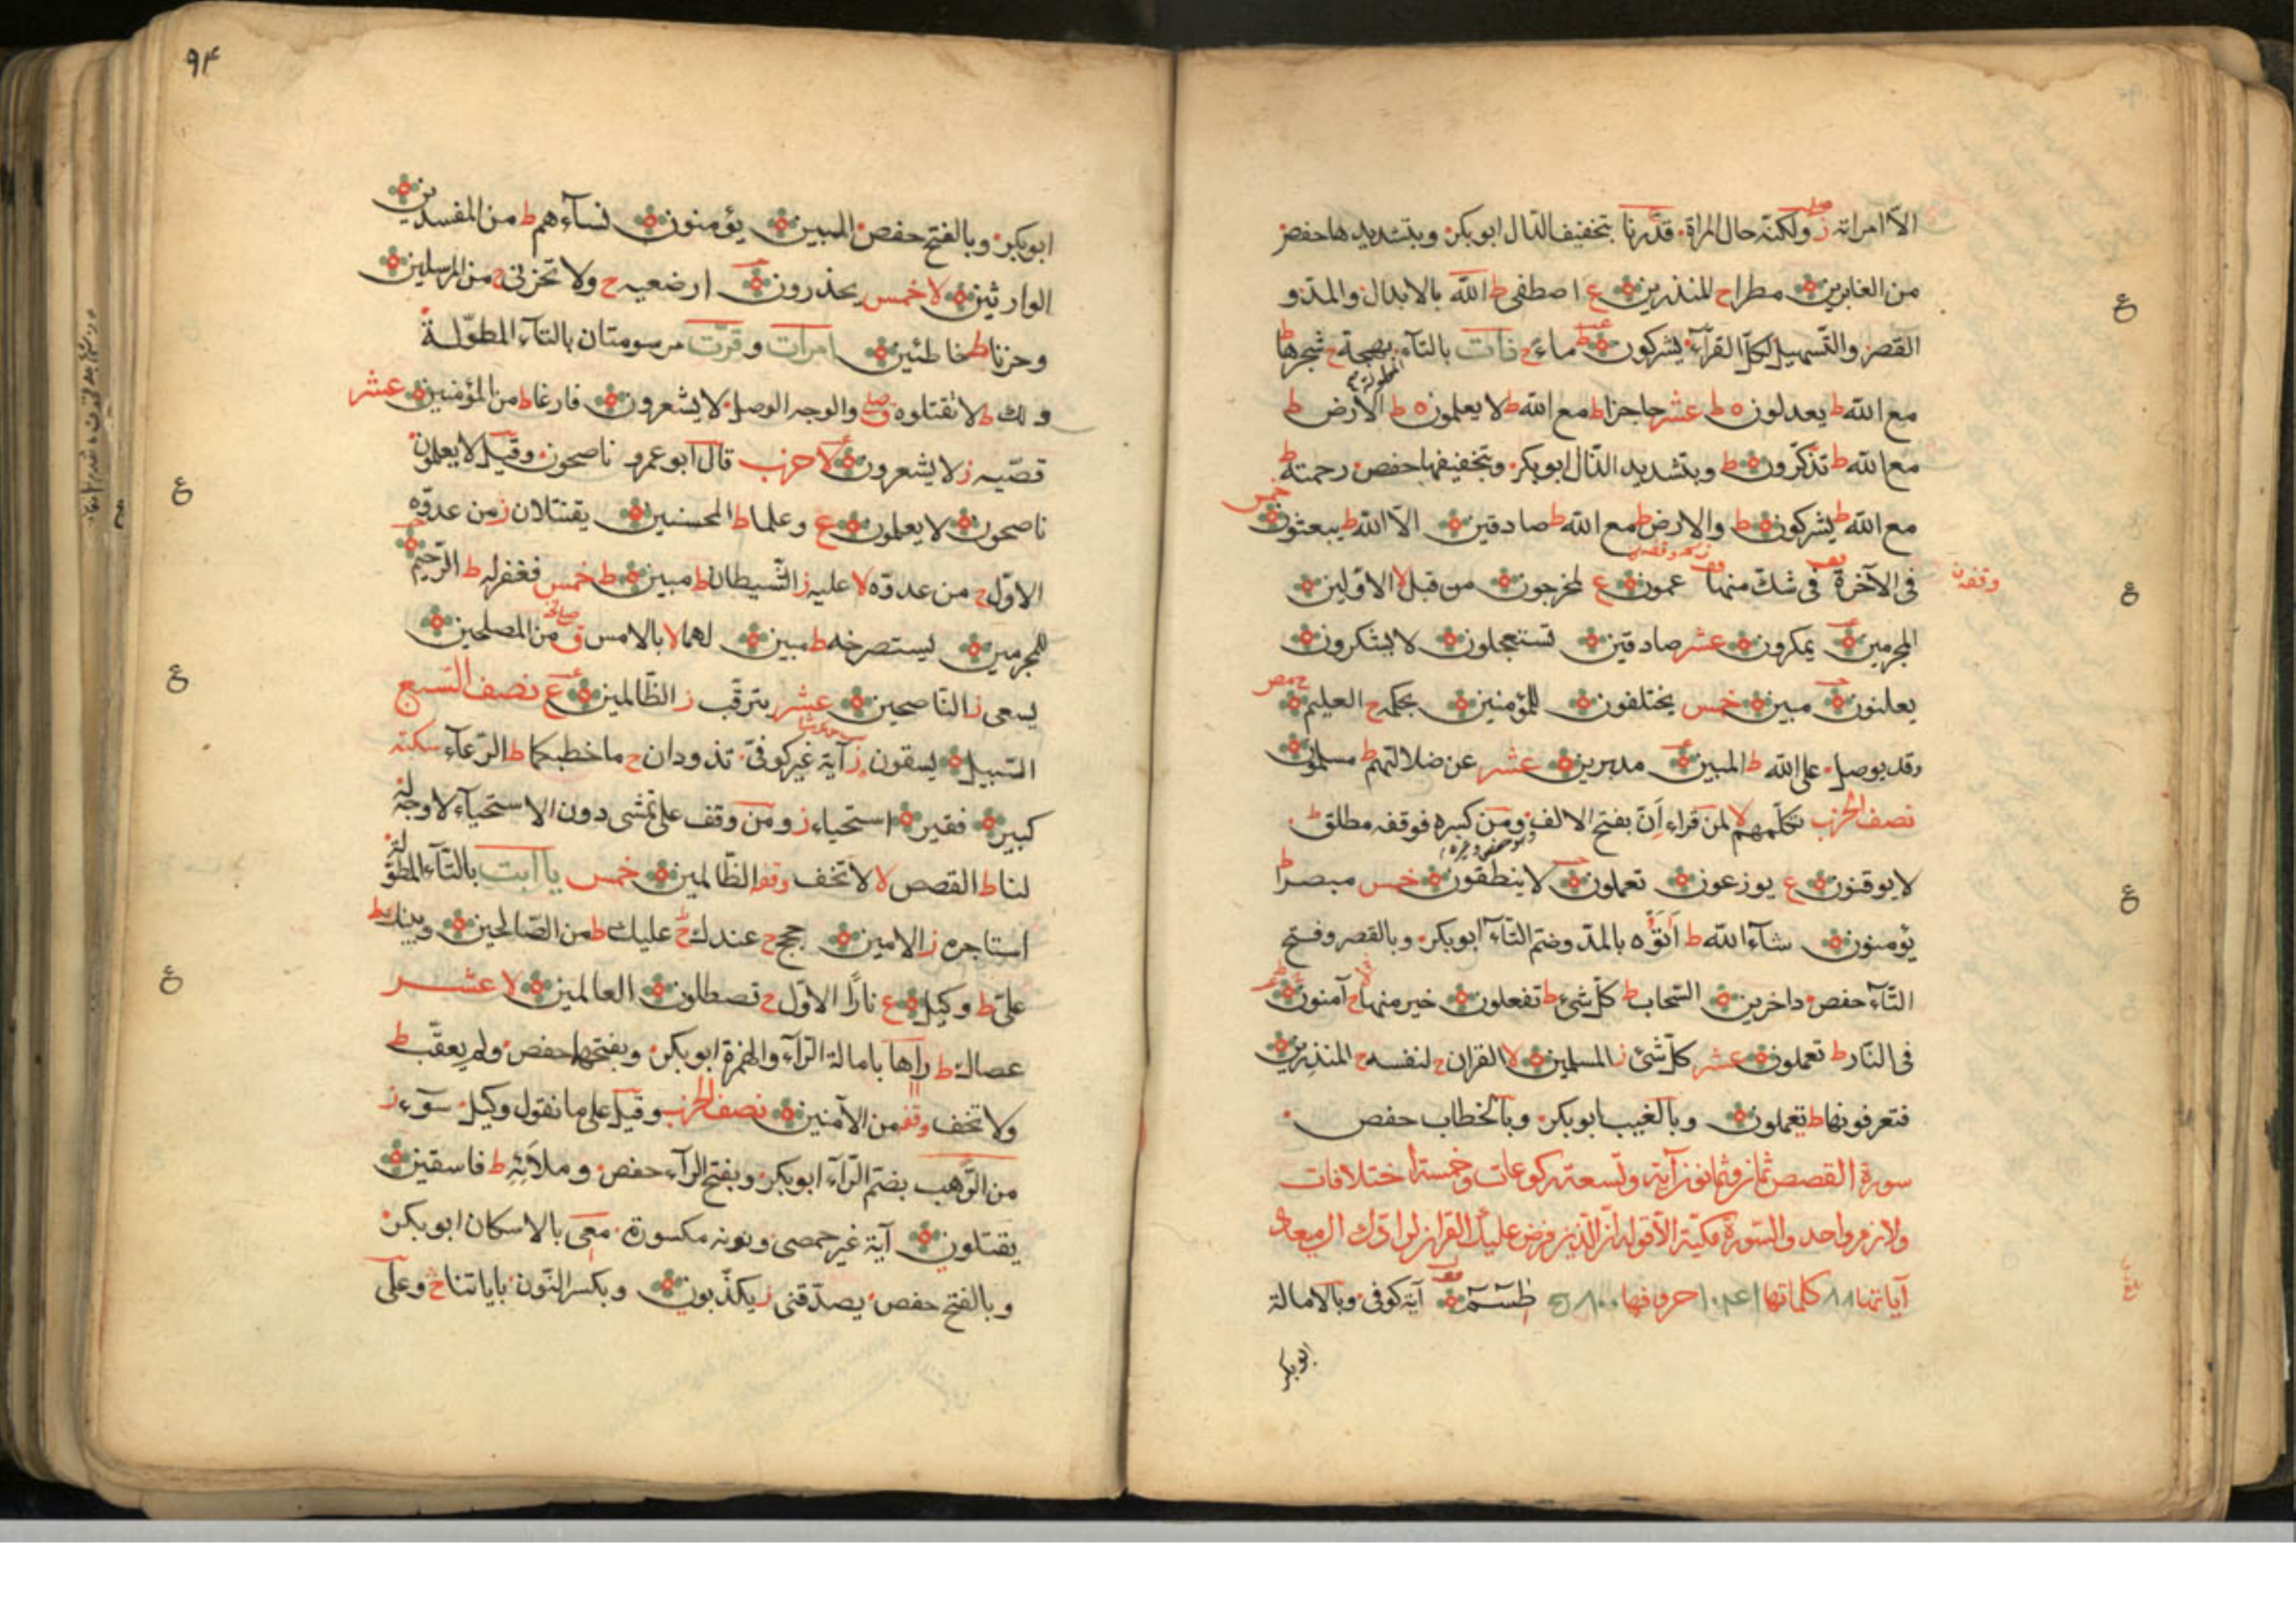 الّا امراته ز ولكنّه حال المراة قدّرنا بتخفيف الدّال ابوبكر وبتشديدها حفص
من الغابرين مطرا ح المنذرين ع اصطفى ط الله بالابدال والمدّ و
القصر والتّسهيل لكلّ القرآء يشركون ط ماء ح ذات بالتآء المطولة بهجة ح شجرها ط
مع الله ط يعدلون ه ط عشر حاجزا ط مع الله ط لا يعلمون ه ط الارض ط
مع الله ط تذكّرون ط وبتشديد الذّال ابوبكر وبتخفيفها حفص رحمته ط
مع الله ط يشركون ط والارض ط مع الله ط صادقين الّا الله ط يبعثون خمس
فى الآخرة قف فى شكّ منها قف عمون ع لمخرجون من قبل لا الاوّلين
وقفه ن
المجرمين يمكرون عشر صادقين تستعجلون لا يشكرون
يعلنون مبين خمس يختلفون للمؤمنين بحكمه ح العليم
وقد يوصل على الله ط المبين مدبرين عشر عن ضلالتهم ط مسلمون
نصف الحزب تكلّمهم لا لمن قراء اَنّ بفتح الالف ومن كسره فوقفه مطلق ط
لا يوقنون ع يوزعون تعملون لا ينطقون خمس مبصرا ط
يؤمنون شآء الله ط اَتوُه بالمدّ وضمّ التآء ابوبكر وبالقصر وفتح
التّآء حفص داخرين السّحاب ط كلّ شئ ط تفعلون خير منها ح آمنون
فى النّار ط تعملون عشر كلّ شئ ز المسلمين لا القران ح لنفسه ح المنذرين
فتعرفونها ط تعملون وبالغيب ابوبكر وبالخطاب حفص
سورة القصص ثمان وثمانون آية وتسعة ركوعات وخمسة اختلافات
ولازم واحد والسّورة مكّيّة الّا قوله انّ الّذى فرض عليك القران لرادّك الى معاد
آياتها ٨٨ كلماتها حروفها طسمّ آية كوفى وبالامالة
ابوبكر
٩٤
ابوبكر وبالفتح حفص المبين يؤمنون نسآءهم ط من المفسدين
الوارثين لا خمس يحذرون ارضعيه ح ولا تحزنى ح من المرسلين
وحزنا ط خاطئين امرات وقرّت مرسومتان بالتآء المطوّلة
ولك ط لا تقتلوه ق صلى والوجه الوصل لا يشعرون فارغا ط من المؤمنين عشر
قصّيه ز لا يشعرون لا حزب قال ابو عمرو ناصحون وقيل لا يعلمون
ناصحون لا يعلمون ع وعلما ط المحسنين يقتتلان ز من عدوّه
الاوّل ح من عدوّه لا عليه ز الشّيطان ط مبين ط خمس فغفر له ط الرّحيم
للمجرمين يستصرخه ط مبين لهما لا بالامس ق من المصلحين
يسعى ز النّاصحين عشر يترقّب ز الظّالمين ع نصف السّبع
السّبيل يسقون ز آية غير كوفىّ تذودان ح ما خطبكما ط الرّعآء سكته
كبير فقير استحياء ز ومن وقف على تمشى دون الاستحيآء لا وجه له
لنا ط القصص لا لا تخف وقفه الظّالمين خمس يا ابت بالتّآء المطوّلة
استاجره ز الامين حجج ح عندك ح عليك ط من الصّالحين وبينك ط
علىّ ط وكيل ع نارًا الاوّل ح تصطلون العالمين لا عشر
عصاك ط رآها بامالة الرّآء والهمزة ابوبكر وبفتحها حفص ولم يعقّب ط
ولا تخف وقفه من الآمنين نصف الحزب وقيل على ما نقول وكيل سوٓء ز
من الرّهب بضمّ الرّآء ابوبكر وبفتح الرآء حفص وملائه ط فاسقين
يقتلون آية غير حمصى ونونه مكسورة معى بالاسكان ابوبكر
وبالفتح حفص يصدّقنى ز يكذّبون وبكسر النّون باياتنا ح وعلى